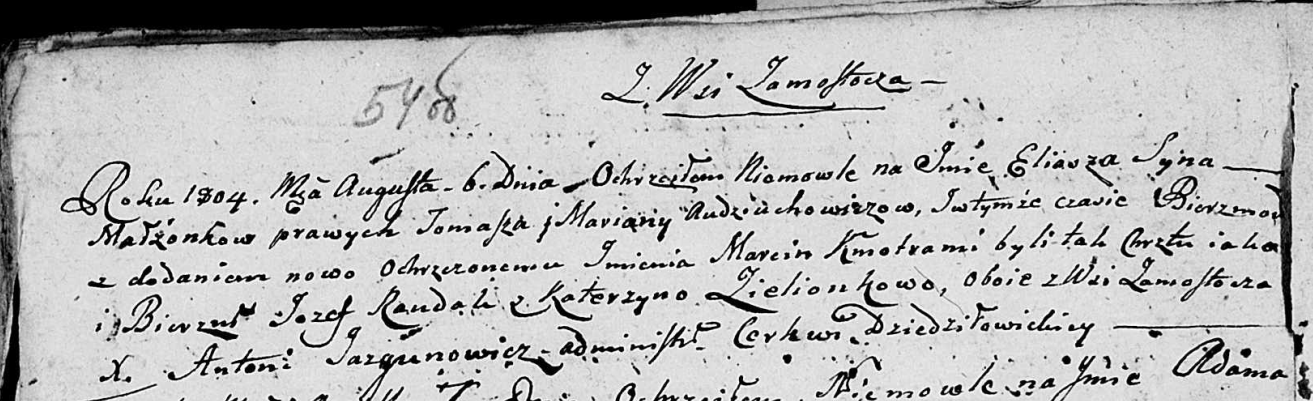 Z Wsi Zamostocza –
54
Roku 1804. Mca Augusta – 6. Dnia Ochrzciłem Niemowle na Jmie Eliasza Syna
Małżonkow prawych Tomasza j Mariany Audziuchowiczow, Jwtymże czasie Bierzmow
z dodaniem nowo Ochrzczonemu Jmienia Marcin Kmotrami byli tak Chrztu iako
i Bierzm Jozef Randak z Katerzyno Zielionkowo, oboie z Wsi Zamostocza
X. Antoni Jazgunowicz administr Cerkwi Dziedziłowickiey
Ochrzciłem Niemowle na Jmie Adama